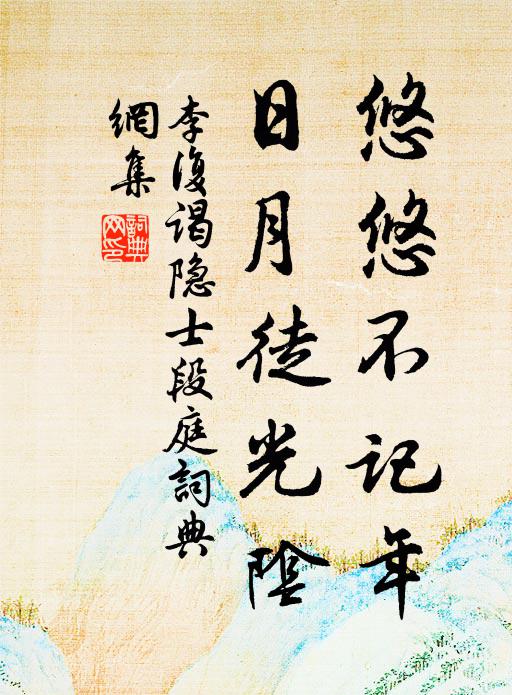 悠悠不记年
日月徒光陰
李復謁隐士段庭詞典
網集
詞典
网印